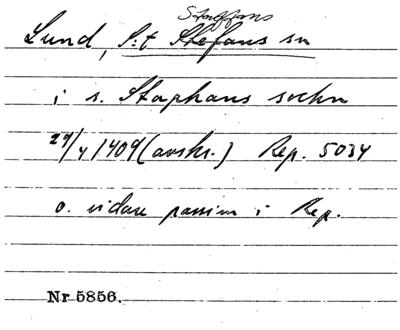 Staffans
Lund, S:t Stefans sn
i s. Staphans sockn
29/4 1409 (avskr.) Rep. 5034
o. vidare passim i Rep.
Nr 5856.